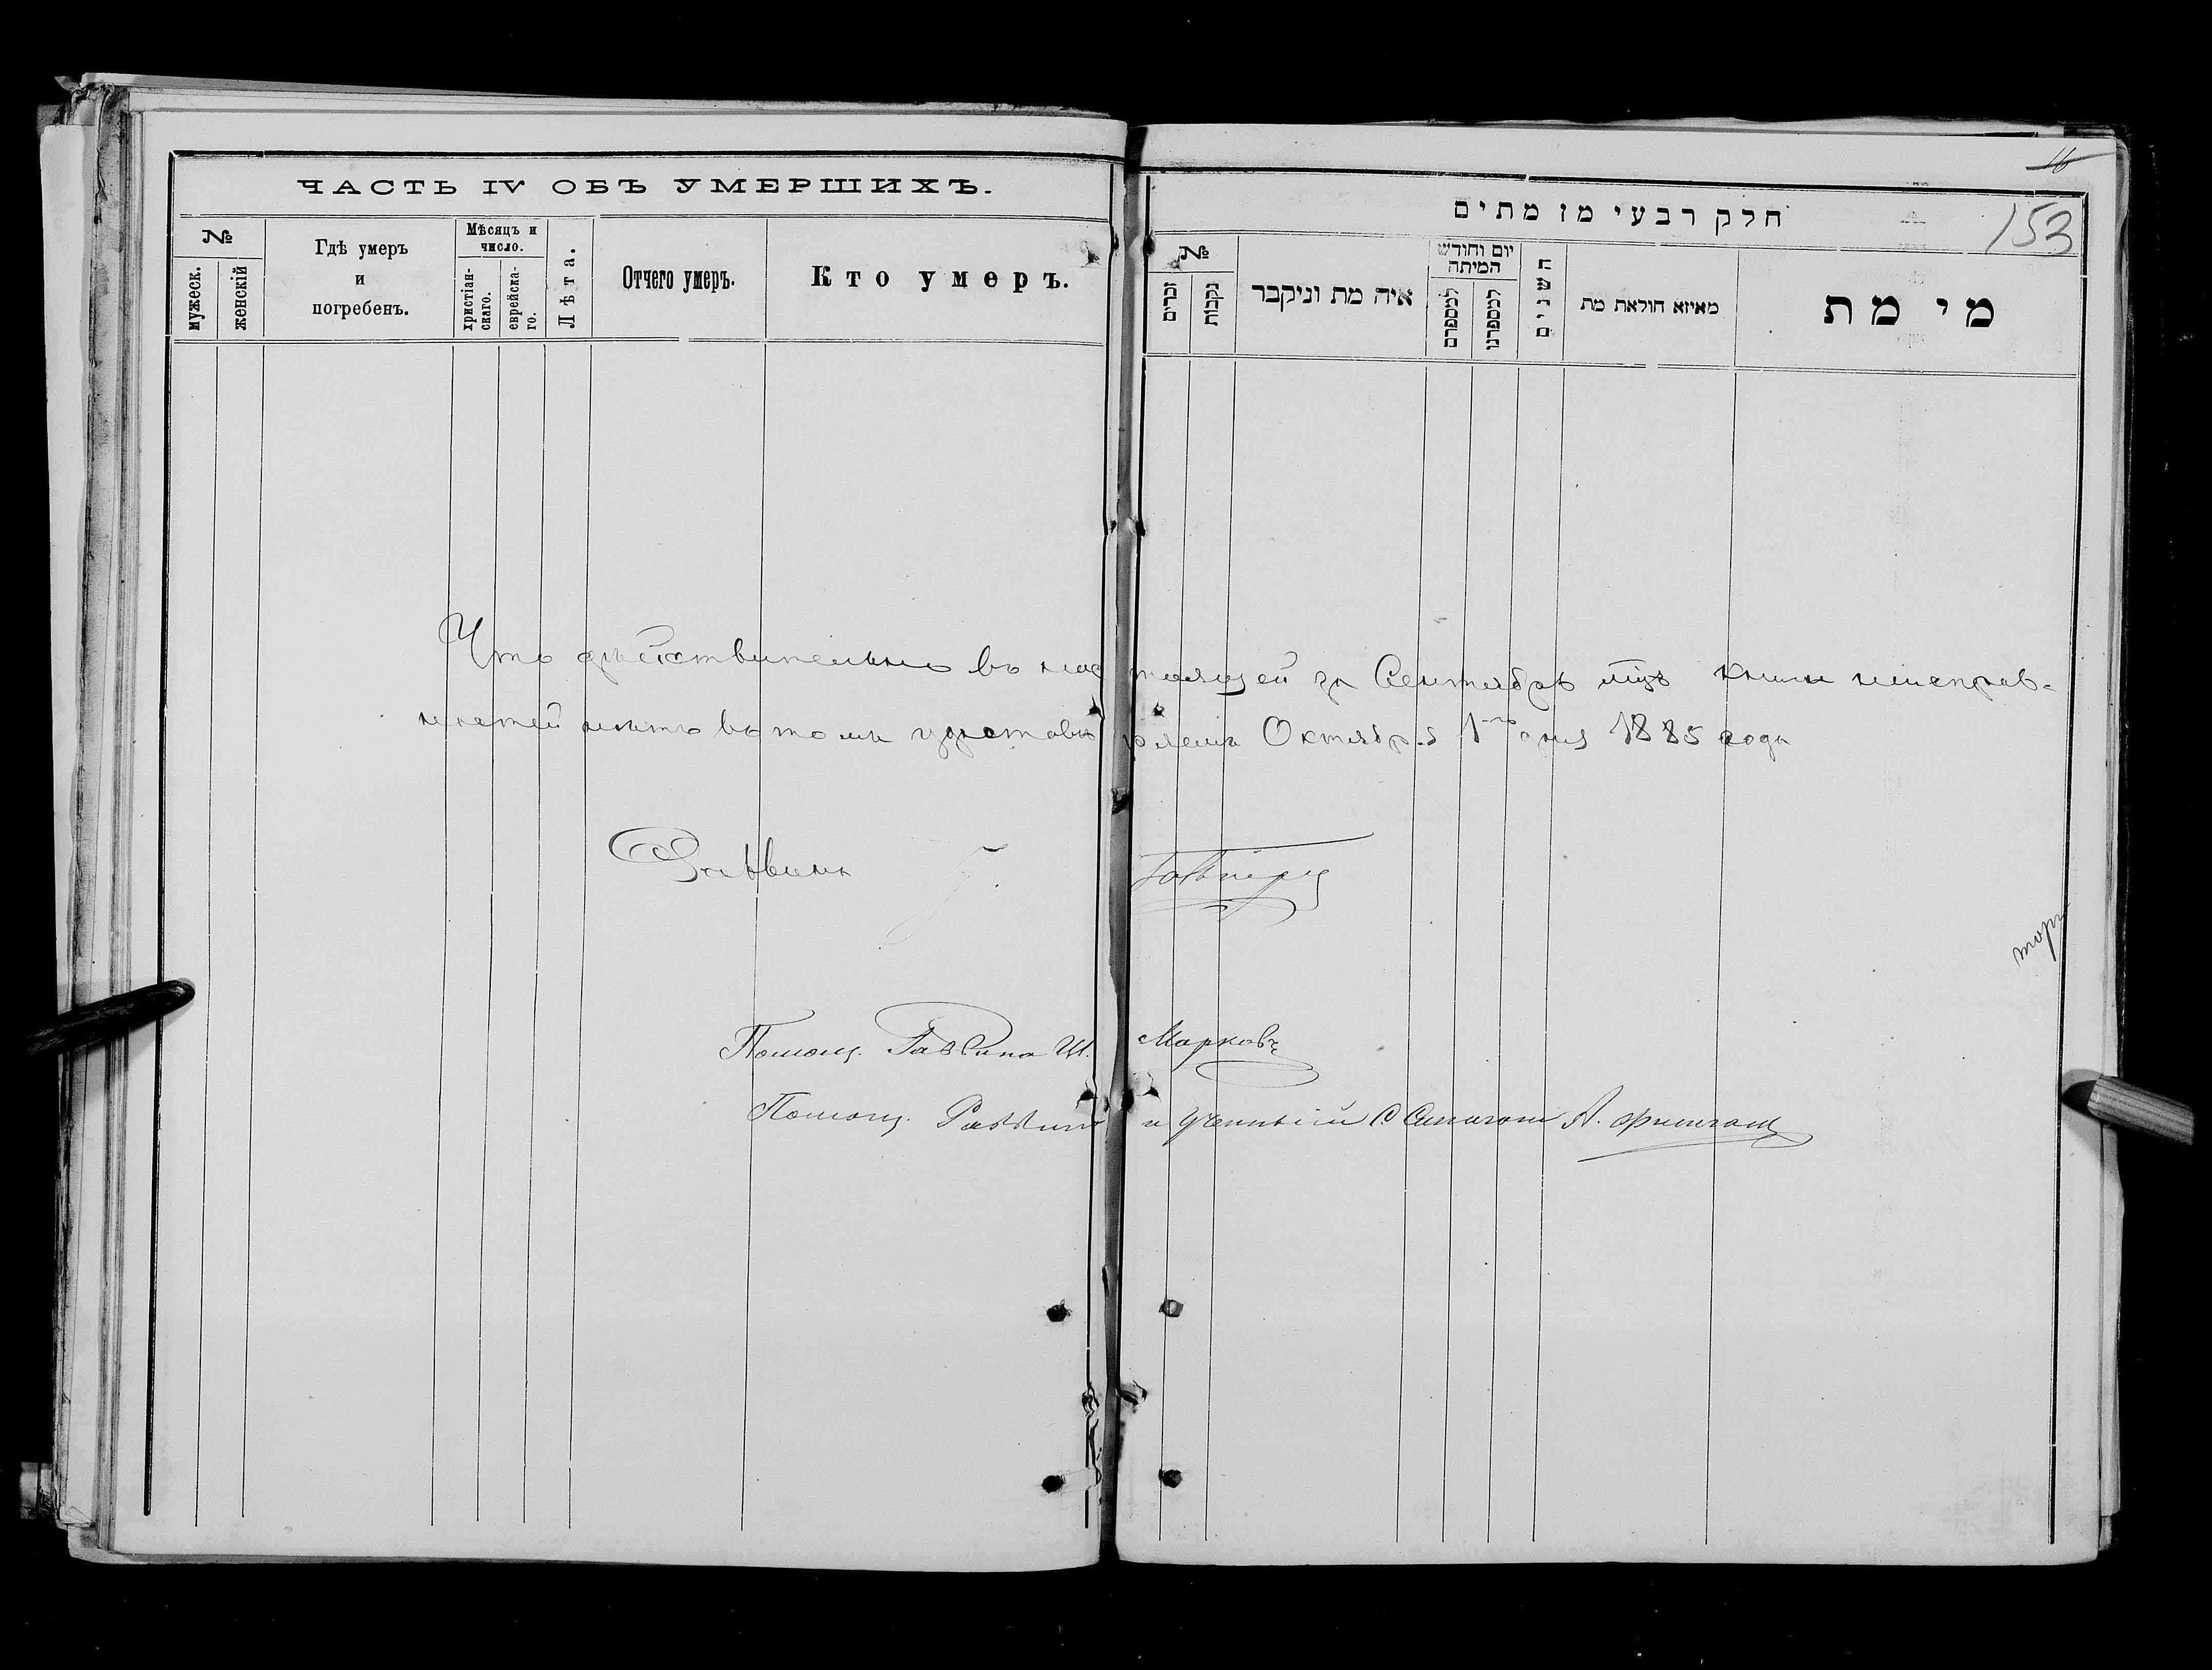 ЧАСТЬ IV ОБЪ УМЕРШИХЪ.
№
мужеск.
женскій
Гдѣ умеръ
и
погребенъ.
Мѣсяцъ и
число.
христіан-
скаго.
еврейска-
го.
Лѣта.
Отчего умеръ.
Кто умеръ.
16
153
חלק רבעי מז מתים
№
זכרים
נקבות
איה מת וניקבר
יום וחודש
המיתה
למספרם
למספרנו
השנים
מאיזא חולאת מת
מי מת
Что действительно въ настоящей за Сентябрь мцъ книги неисправ-
ностей нѣтъ въ томъ удостовѣряемъ Октября 1го дня 1885 года
Раввинъ
Помощ. Раввина Ш. Марковъ
Помощ. Раввина и ученный